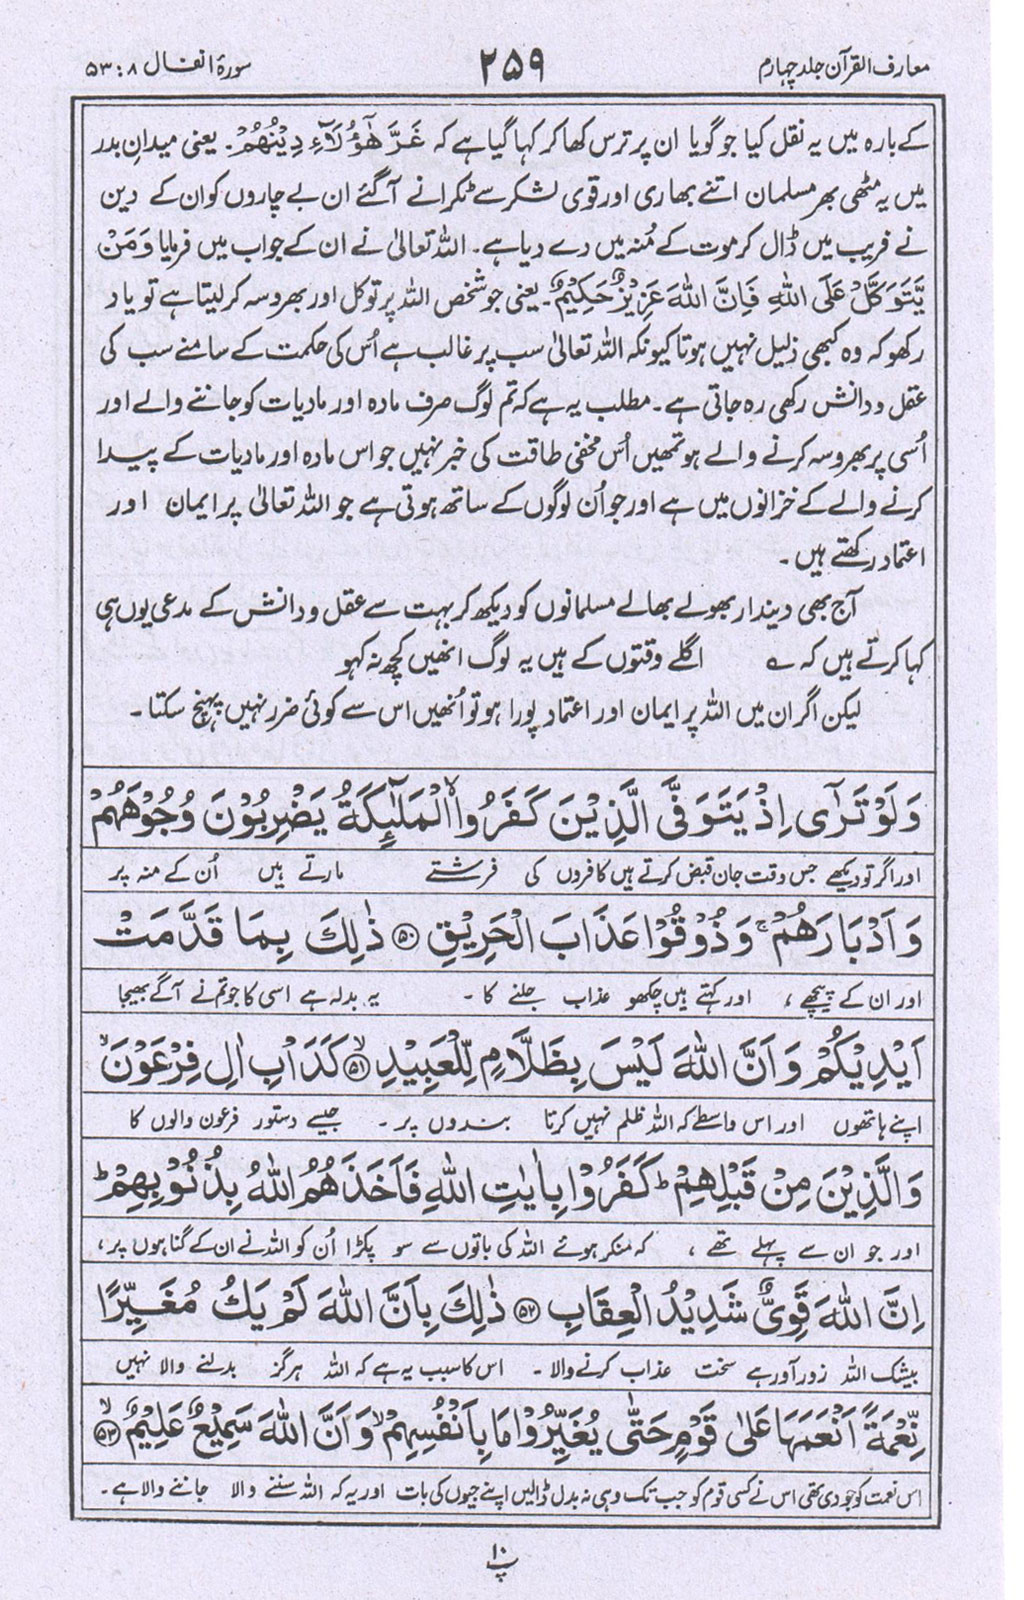 معارف القرآن جلد چہارم
۲۵۹
سورۂ انفال ۸ : ۵۳
کے بارہ میں یہ نقل کیا جو گویا ان پر ترس کھا کر کہا گیا ہے کہ غَرَّ هٰٓؤُلَآءِ دِيْنُهُمْ۔ یعنی میدانِ بدر
میں یہ مٹھی بھر مسلمان اتنے بھاری اور قوی لشکر سے ٹکرانے آگئے ان بے چاروں کو ان کے دین
نے فریب میں ڈال کر موت کے مُنہ میں دے دیا ہے۔ اللہ تعالیٰ نے ان کے جواب میں فرمایا وَمَنْ
يَّتَوَكَّلْ عَلَى اللّٰهِ فَاِنَّ اللّٰهَ عَزِيْزٌ حَكِيْمٌ۔ یعنی جو شخص اللہ پر توکل اور بھروسہ کر لیتا ہے تو یاد
رکھو کہ وہ کبھی ذلیل نہیں ہوتا کیونکہ اللہ تعالیٰ سب پر غالب ہے اُس کی حکمت کے سامنے سب کی
عقل و دانش رکھی رہ جاتی ہے۔ مطلب یہ ہے کہ تم لوگ صرف مادہ اور مادیات کو جاننے والے اور
اُسی پر بھروسہ کرنے والے ہو تمھیں اُس مخفی طاقت کی خبر نہیں جو اس مادہ اور مادیات کے پیدا
کرنے والے کے خزانوں میں ہے اور جو اُن لوگوں کے ساتھ ہوتی ہے جو اللہ تعالیٰ پر ایمان اور
اعتماد رکھتے ہیں۔
آج بھی دیندار بھولے بھالے مسلمانوں کو دیکھ کر بہت سے عقل و دانش کے مدعی یوں ہی
کہا کرتے ہیں کہ ؎ اگلے وقتوں کے ہیں یہ لوگ انھیں کچھ نہ کہو
لیکن اگر ان میں اللہ پر ایمان اور اعتماد پورا ہو تو اُنھیں اس سے کوئی ضرر نہیں پہنچ سکتا۔
وَلَوْ تَرٰٓى اِذْ يَتَوَفَّى الَّذِيْنَ كَفَرُوا ۙ الْمَلٰٓئِكَةُ يَضْرِبُوْنَ وُجُوْهَهُمْ
اور اگر تو دیکھے جس وقت جان قبض کرتے ہیں کافروں کی فرشتے مارتے ہیں اُن کے منہ پر
وَاَدْبَارَهُمْ ۚ وَذُوْقُوْا عَذَابَ الْحَرِيْقِ ﴿۵۰﴾ ذٰلِكَ بِمَا قَدَّمَتْ
اور ان کے پیچھے ، اور کہتے ہیں چکھو عذاب جلنے کا ۔ یہ بدلہ ہے اسی کا جو تم نے آگے بھیجا
اَيْدِيْكُمْ وَاَنَّ اللّٰهَ لَيْسَ بِظَلَّامٍ لِّلْعَبِيْدِ ﴿۵۱﴾ ۙ كَدَاْبِ اٰلِ فِرْعَوْنَ ۙ
اپنے ہاتھوں اور اس واسطے کہ اللہ ظلم نہیں کرتا بندوں پر ۔ جیسے دستور فرعون والوں کا
وَالَّذِيْنَ مِنْ قَبْلِهِمْ ؕ كَفَرُوْا بِاٰيٰتِ اللّٰهِ فَاَخَذَهُمُ اللّٰهُ بِذُنُوْبِهِمْ ؕ
اور جو ان سے پہلے تھے ، کہ منکر ہوئے اللہ کی باتوں سے سو پکڑا اُن کو اللہ نے ان کے گناہوں پر ،
اِنَّ اللّٰهَ قَوِيٌّ شَدِيْدُ الْعِقَابِ ﴿۵۲﴾ ذٰلِكَ بِاَنَّ اللّٰهَ لَمْ يَكُ مُغَيِّرًا
بیشک اللہ زور آور ہے سخت عذاب کرنے والا ۔ اس کا سبب یہ ہے کہ اللہ ہرگز بدلنے والا نہیں
نِّعْمَةً اَنْعَمَهَا عَلٰى قَوْمٍ حَتّٰى يُغَيِّرُوْا مَا بِاَنْفُسِهِمْ ۙ وَاَنَّ اللّٰهَ سَمِيْعٌ عَلِيْمٌ ﴿۵۳﴾ ۙ
اس نعمت کو جو دی تھی اس نے کسی قوم کو جب تک وہی نہ بدل ڈالیں اپنے جیوں کی بات اور یہ کہ اللہ سننے والا جاننے والا ہے ۔
۱۰
پ